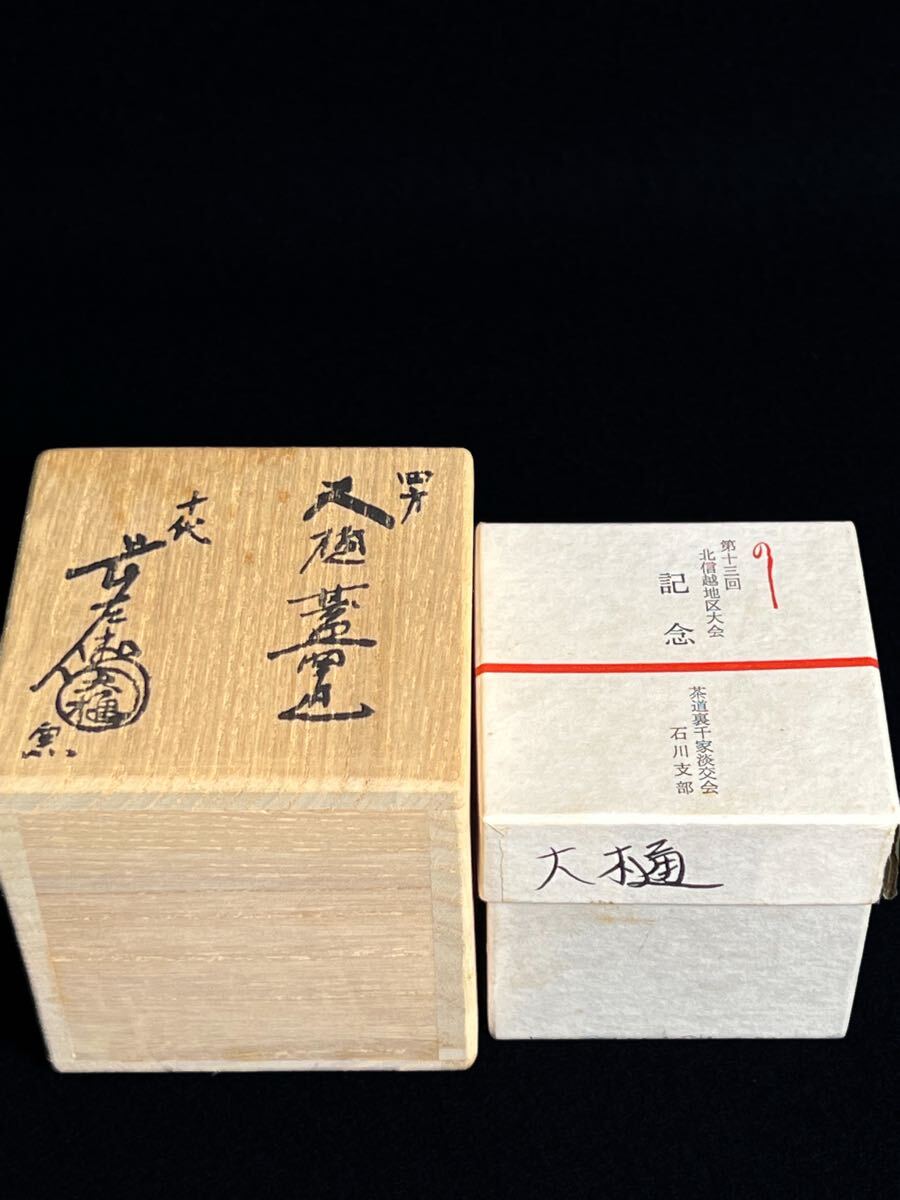 四方
大樋 蓋置
十代
長左衛門
大樋
窯
第十三回
北信越地区大会
記念
茶道裏千家淡交会
石川支部
大樋